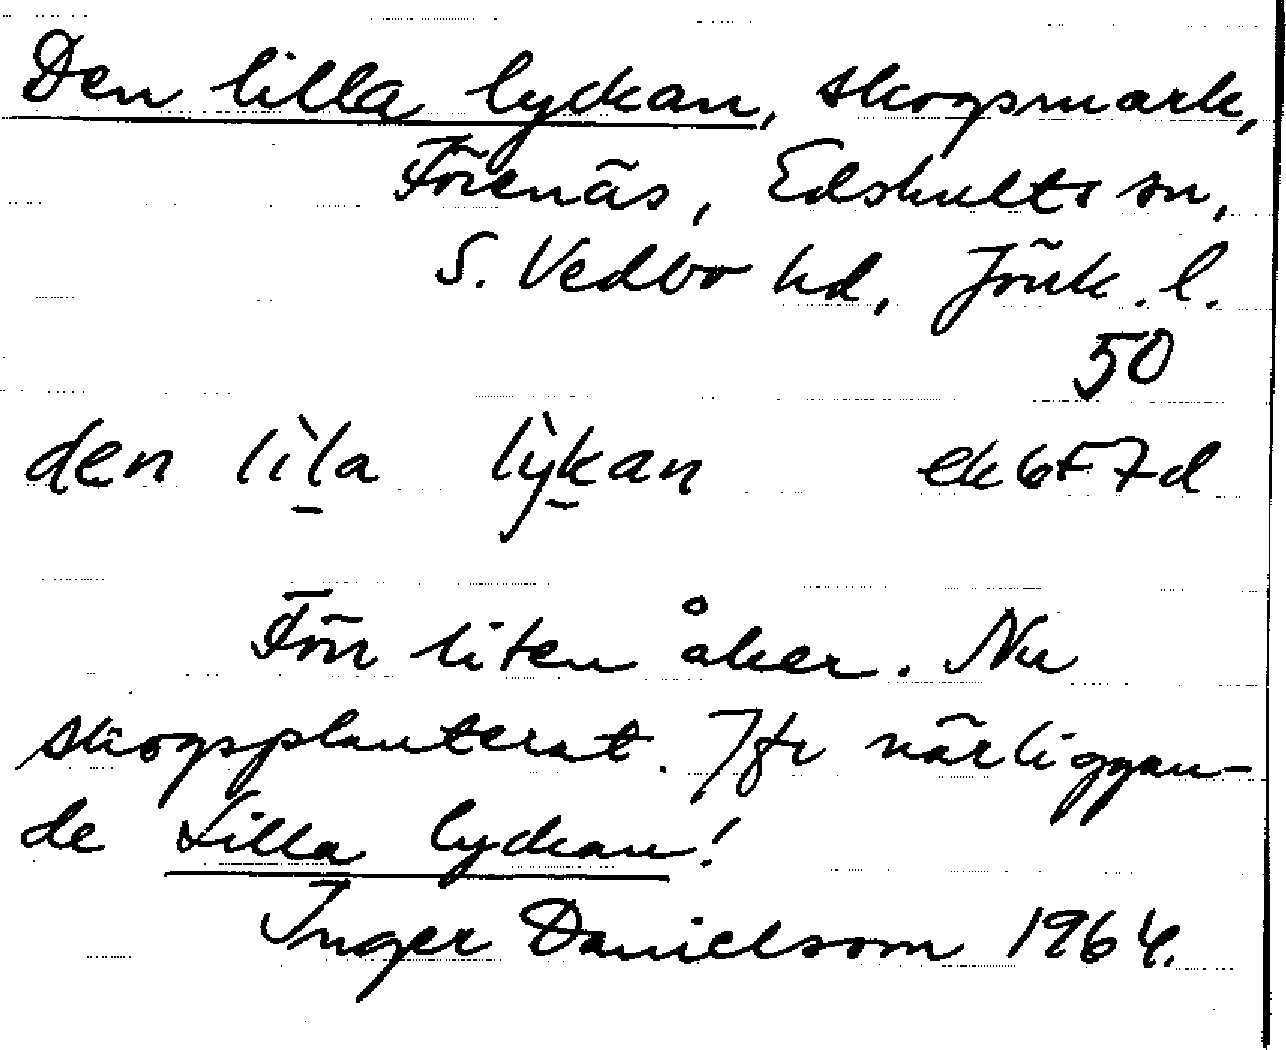 Den lilla lyckan, skogsmark,
Förenäs, Edshults sn,
S. Vedbo hd, Jönk. l.
50
den lìl̠a lỳk̠an ek6F7d
Förr liten åker. Nu
skogsplanterat. Jfr närliggan-
de Lilla lyckan!
Inger Danielsson 1964.